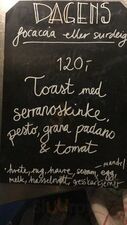 DAGENS
focacia eller surdeig
120,-
Toast med
serranoskinke,
pesto, grana padano
& tomat
mandel
*hvete, rug, havre, sesam, egg,
melk, hasselnøtt, gresskarkjerner